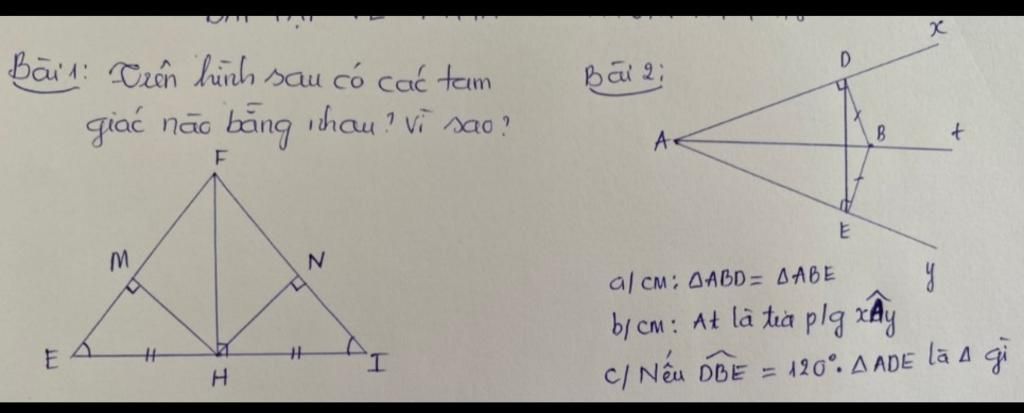 Bài 1: Trên hình sau có các tam
giác nào bằng nhau? Vì sao?
F
M
N
E
H
I
Bài 2:
x
D
A
B
t
E
y
a/ CM: ΔABD = ΔABE
b/ CM: At là tia p/g xÂy
c/ Nếu \widehat{DBE} = 120°. ΔADE là Δ gì